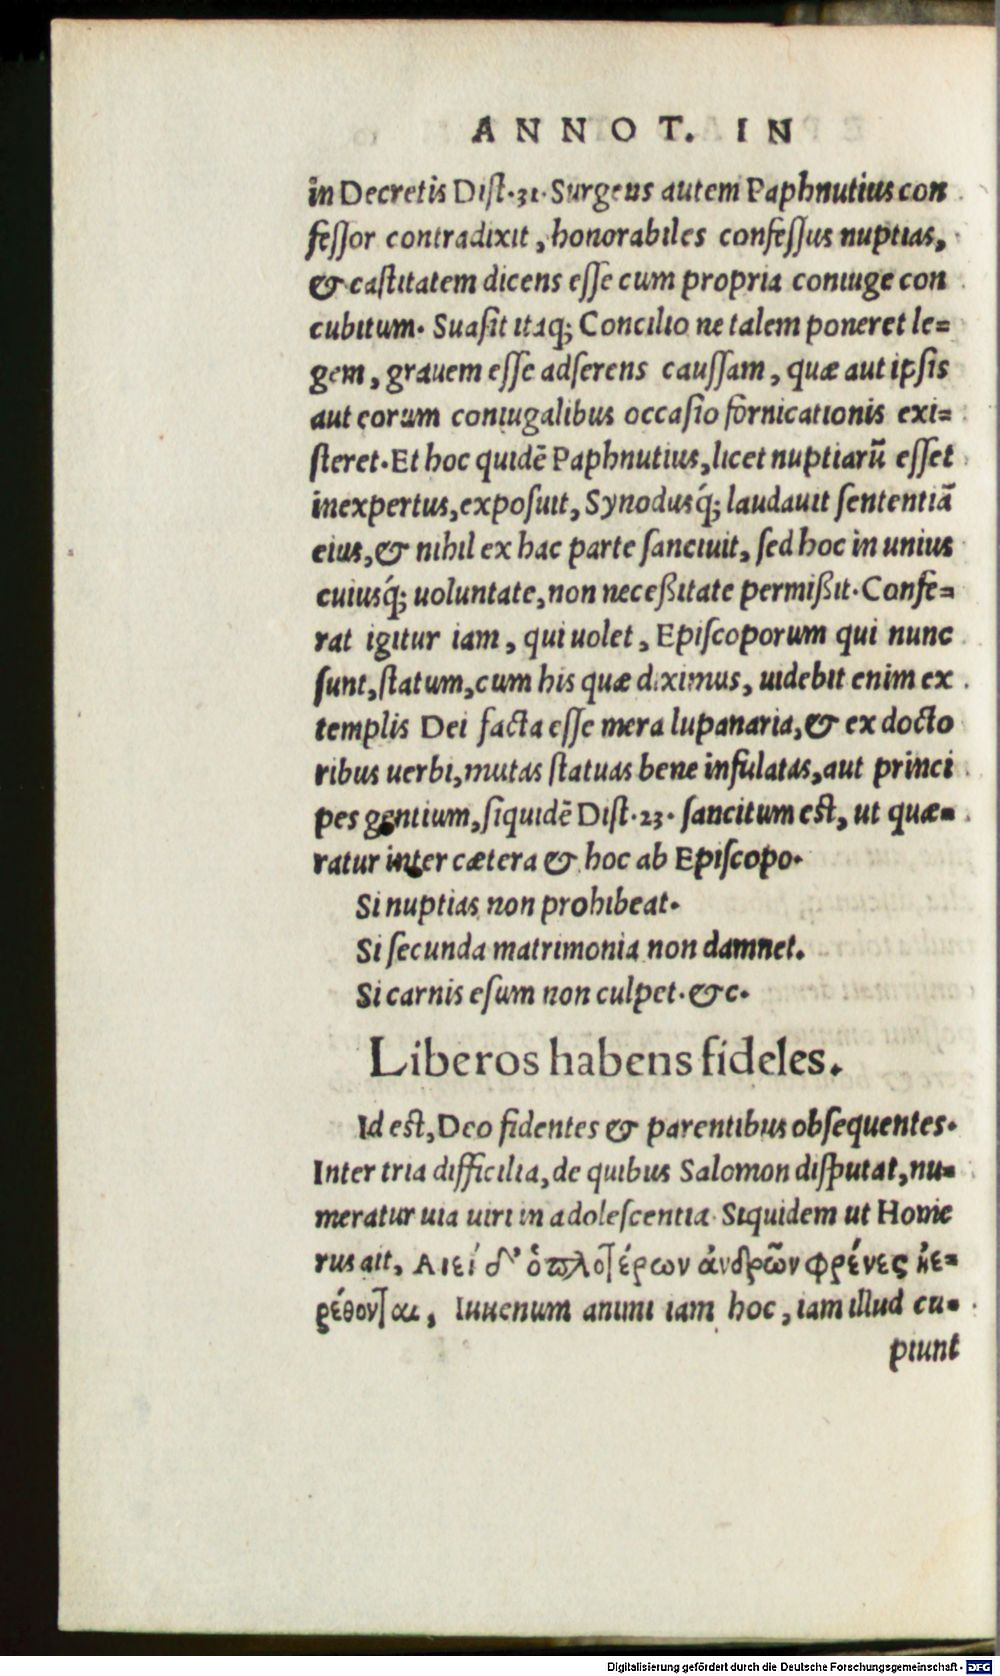 ANNOT. IN
in Decretis Dist. 31. Surgens autem Paphnutius con
fessor contradixit, honorabiles confessus nuptias,
& castitatem dicens esse cum propria coniuge con
cubitum. Suasit itaq; Concilio ne talem poneret le=
gem, grauem esse adserens caussam, quæ aut ipsis
aut eorum coniugalibus occasio fornicationis exi=
steret. Et hoc quidē Paphnutius, licet nuptiarū esset
inexpertus, exposuit, Synodusq́; laudauit sententiā
eius, & nihil ex hac parte sanciuit, sed hoc in unius
cuiusq́; uoluntate, non neceßitate permißit. Confe=
rat igitur iam, qui uolet, Episcoporum qui nunc
sunt, statum, cum his quæ diximus, uidebit enim ex
templis Dei facta esse mera lupanaria, & ex docto
ribus uerbi, mutas statuas bene infulatas, aut princi
pes gentium, siquidē Dist. 23. sancitum est, ut quæ=
ratur inter cætera & hoc ab Episcopo.
Si nuptias non prohibeat.
Si secunda matrimonia non damnet.
Si carnis esum non culpet. &c.
Liberos habens fideles.
Id est, Deo fidentes & parentibus obsequentes.
Inter tria difficilia, de quibus Salomon disputat, nu=
meratur uia uiri in adolescentia. Siquidem ut Home
rus ait, Αιεί δ' ὁπλοτέρων ἀνδρῶν φρένες ἠε=
ρέθονται, Iuuenum animi iam hoc, iam illud cu=
piunt
Digitalisierung gefördert durch die Deutsche Forschungsgemeinschaft - DFG